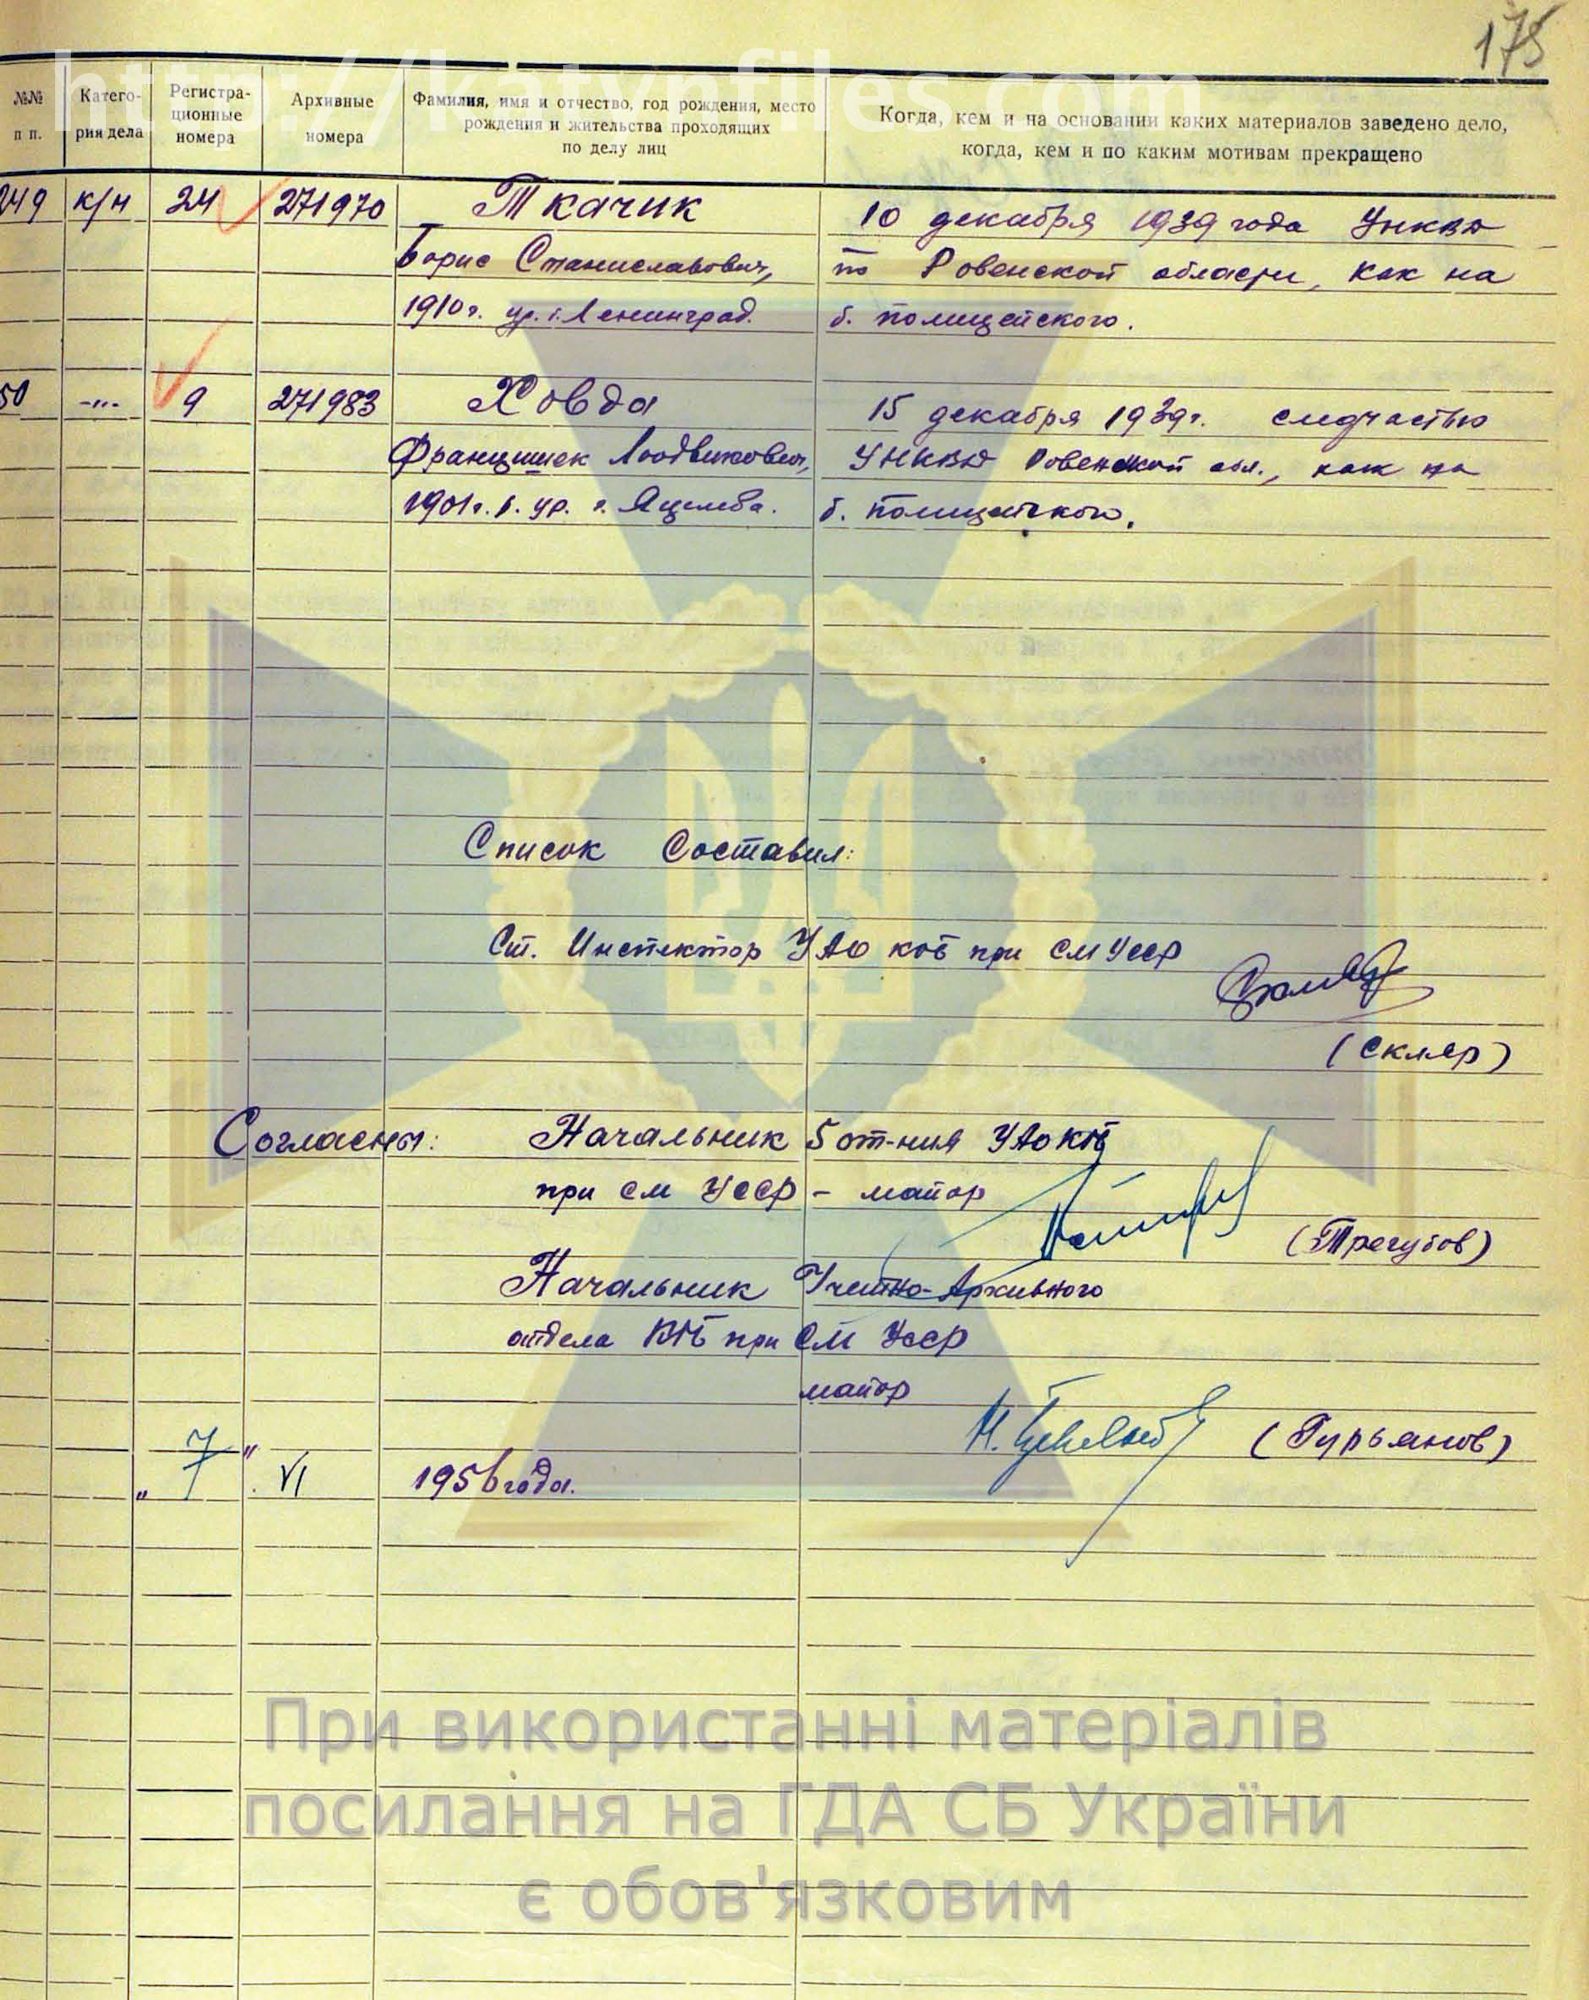 175
http://katynfiles.com
№№ п п.
Катего- рия дела
Регистра- ционные номера
Архивные номера
Фамилия, имя и отчество, год рождения, место
рождения и жительства проходящих
по делу лиц
Когда, кем и на основании каких материалов заведено дело,
когда, кем и по каким мотивам прекращено
249 к/н 24 271970 Ткачик 10 декабря 1939 года УНКВД
Борис Станиславович, по Ровенской области, как на
1910г. ур. г. Ленинград. б. полицейского.
50 -"- 9 271983 Ховда 15 декабря 1939г. следчастью
Францишек Людвикович, УНКВД Ровенской обл., как на
1901г.р. ур. г. б. полицейского.
Список Составил:
Ст. Инспектор УАО КГБ при СМ УССР
(Скляр)
Согласны: Начальник 5 от-ния УАО КГБ
при СМ УССР - майор
(Трегубов)
Начальник Учетно-Архивного
отдела КГБ при СМ УССР
майор
(Гурьянов)
"7" VI 1956 года.
При використанні матеріалів
посилання на ГДА СБ України
є обов'язковим